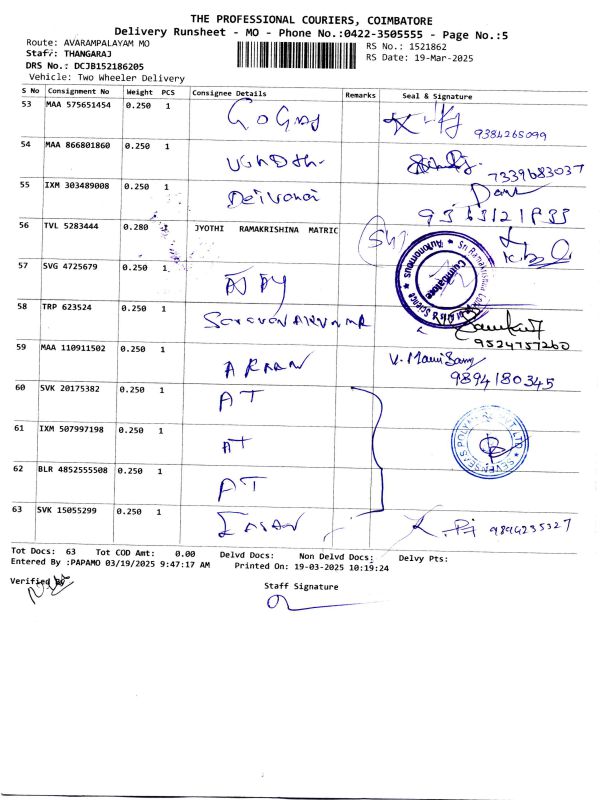 THE PROFESSIONAL COURIERS, COIMBATORE
Delivery Runsheet - MO - Phone No.:0422-3505555 - Page No.:5
Route: AVARAMPALAYAM MO
RS No.: 1521862
Staff: THANGARAJ
RS Date: 19-Mar-2025
DRS No.: DCJB152186205
Vehicle: Two Wheeler Delivery
S No Consignment No Weight PCS Consignee Details Remarks Seal & Signature
53 MAA 575651454 0.250 1
9384265099
54 MAA 866801860 0.250 1
7339683037
55 IXM 303489008 0.250 1 Deivanai
56 TVL 5283444 0.280 1 JYOTHI RAMAKRISHINA MATRIC
57 SVG 4725679 0.250 1
Coimbatore
58 TRP 623524 0.250 1
9524757260
59 MAA 110911502 0.250 1
9894180345
60 SVK 20175382 0.250 1 AT
61 IXM 507997198 0.250 1 AT
62 BLR 4852555508 0.250 1 AT
63 SVK 15055299 0.250 1
9894235327
Tot Docs: 63 Tot COD Amt: 0.00 Delvd Docs: Non Delvd Docs: Delvy Pts:
Entered By :PAPAMO 03/19/2025 9:47:17 AM Printed On: 19-03-2025 10:19:24
Verified By
Staff Signature